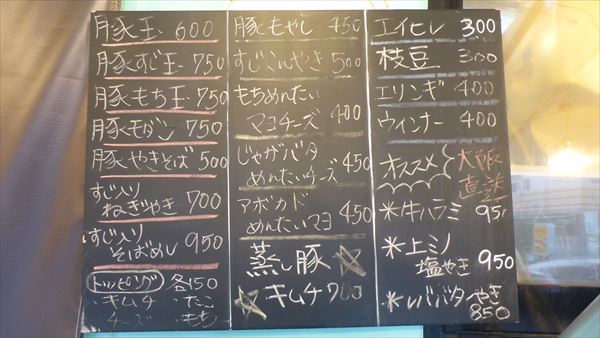 豚玉 600
豚すじ玉 750
豚もち玉 750
豚モダン 750
豚やきそば 500
すじ入り
ねぎやき 700
すじ入り
そばめし 950
トッピング 各150
・キムチ ・たこ
・チーズ ・もち
豚もやし 450
すじこんやき 500
もちめんたい
マヨチーズ 400
じゃがバタ
めんたいチーズ 450
アボカド
めんたいマヨ 450
蒸し豚
キムチ 700
エイヒレ 300
枝豆 300
エリンギ 400
ウィンナー 400
オススメ 大阪
直送
※牛ハラミ 950
※上ミノ
塩やき 950
※レババタやき
850